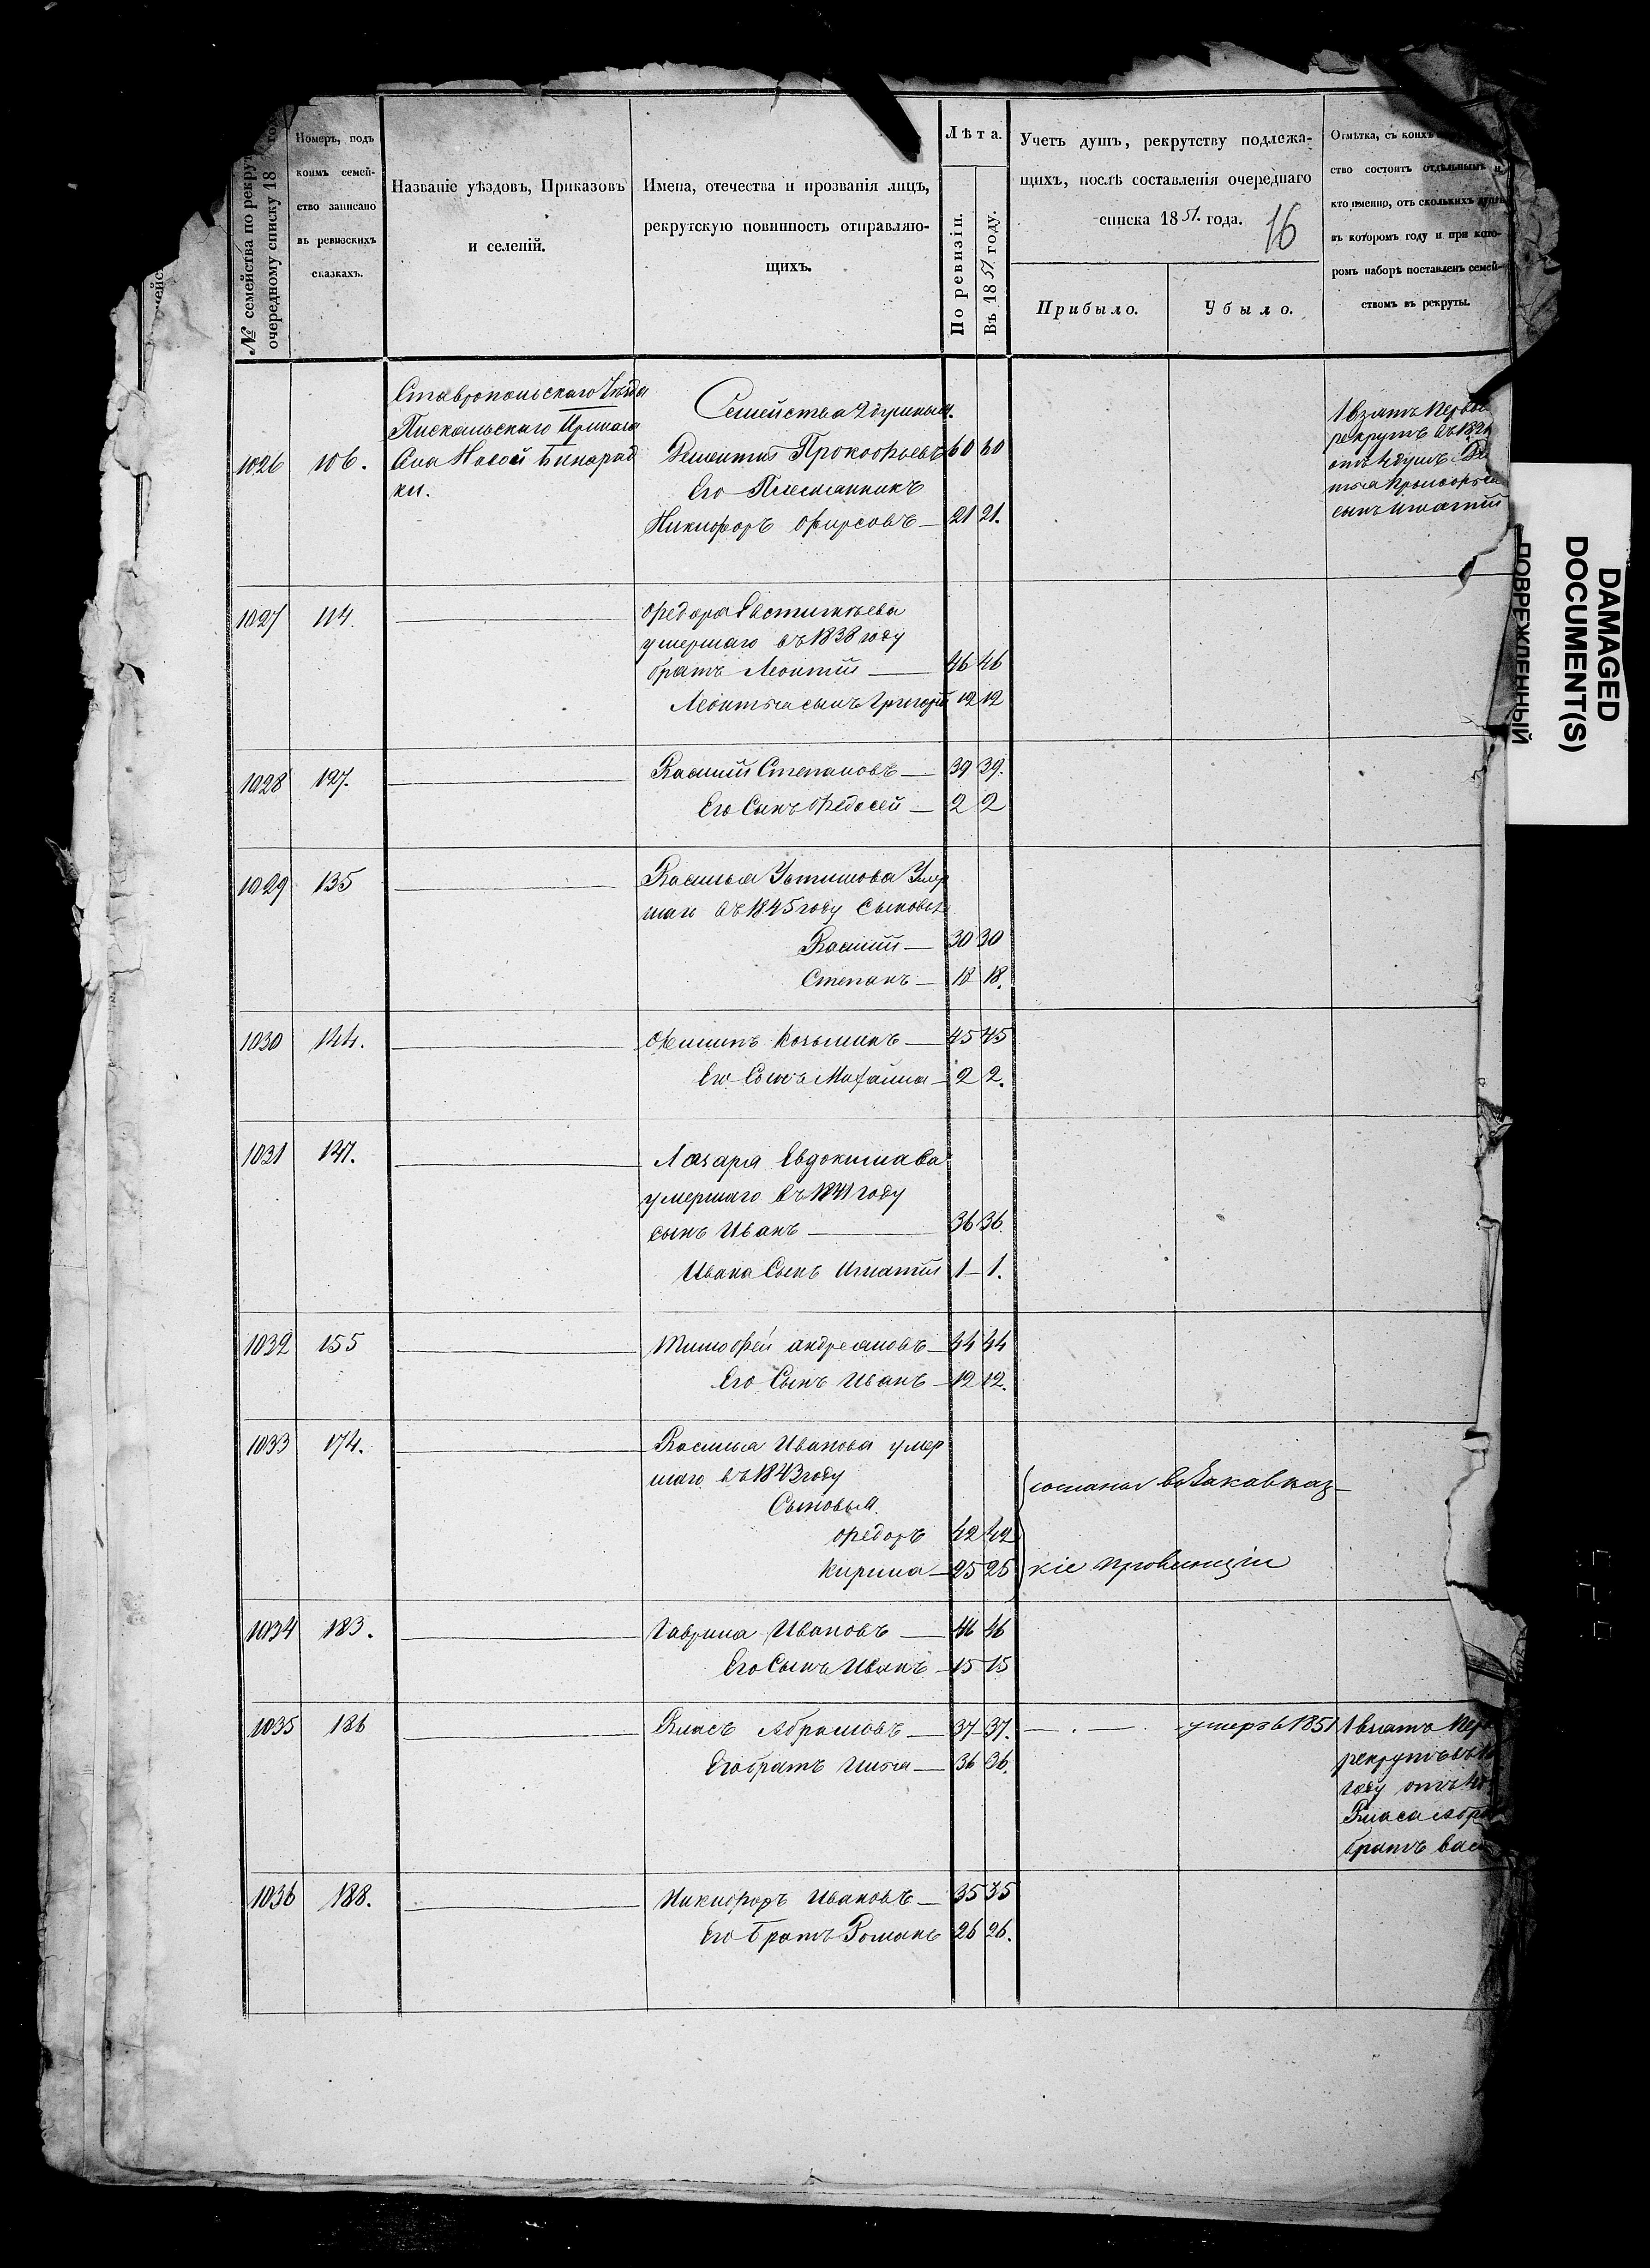 № семейства по рекрут
очередному списку 18 год
Номеръ, подъ
коимъ семей-
ство записано
въ ревизскихъ
сказкахъ.
Названіе уѣздовъ, Приказовъ
и селеній.
Имена, отечества и прозванія лицъ,
рекрутскую повинность отправляю-
щихъ.
Лѣта.
По ревизіи.
Въ 1851 году.
Учетъ душъ, рекрутству подлежа-
щихъ, послѣ составленія очереднаго
списка 1851. года.
16
Прибыло.
Убыло.
Отмѣтка, съ коихъ
ство состоитъ отдѣльнымъ и
кто именно, отъ сколькихъ душъ
въ которомъ году и при кото-
ромъ наборѣ поставленъ семей-
ствомъ въ рекруты.
1026 106. Ставропольскаго Уѣзда
Пискальскаго Приказа
Села Новой Бинарад
ки.
Семейства 2 душныя.
Дементій Прокофьевъ 60 60
Его Племянникъ
Никифоръ Фирсовъ 21 21.
1 взятъ Первы
рекрутъ въ 182
отъ 4 душъ Де
нтья Прокофьев
сынъ Игнатій
1027 114. Федора Евстигнѣева
умершаго въ 1838 году
братъ Леонтій 46 46
Леонтья сынъ Григорій 12 12
1028 127. Василій Степановъ 39 39.
Его Сынъ Федосей 2 2
1029 135 Василья Устинова Умер
шаго въ 1845 году Сыновья
Василій 30 30
Степанъ 18 18.
1030 144. Филипъ Козьминъ 45 45
Его Сынъ Михайла 2 2.
1031 147. Лазаря Евдокимава
умершаго въ 1841 году
сынъ Иванъ 36 36
Ивана Сынъ Игнатій 1 1.
1032 155 Тимофей андреяновъ 44 44
Его Сынъ Иванъ 12 12.
1033 174. Василья Иванова умер
шаго въ 1843 году
Сыновья
Федоръ 42 42
Кирила 25 25
сосланы въ Закавказ-
кіе провинціи
1034 183. Гаврила Ивановъ 46 46
Его Сынъ Иванъ 15 15
1035 186 Власъ Абрамовъ 37 37. умеръ в 1851
Его братъ Илья 36 36.
1 взятъ Пер
рекрутъ въ 1
году отъ
Власа Абра
братъ вас
1036 188. Никифоръ Ивановъ 35 35
Его Братъ Романъ 26 26.
DAMAGED
DOCUMENT(S)
ПОВРЕЖДЕННЫЙ